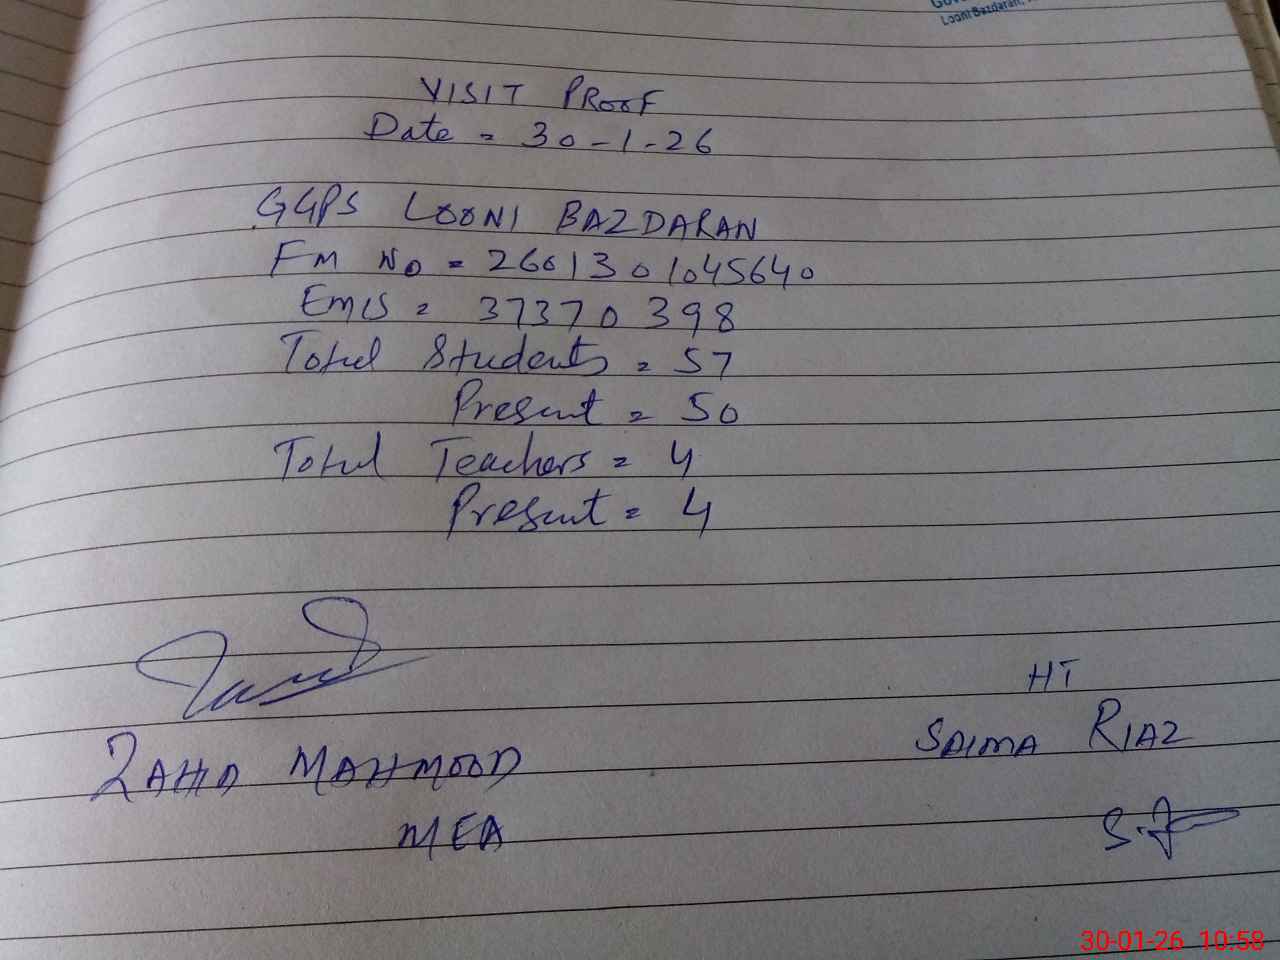 Looni Bazdaran,
VISIT PROOF
Date = 30-1-26
GGPS LOONI BAZDARAN
FM NO = 2601301045640
EMIS = 37370398
Total Students = 57
Present = 50
Total Teachers = 4
Present = 4
HT
ZAHID MAHMOOD
SAIMA RIAZ
MEA
30-01-26 10:58